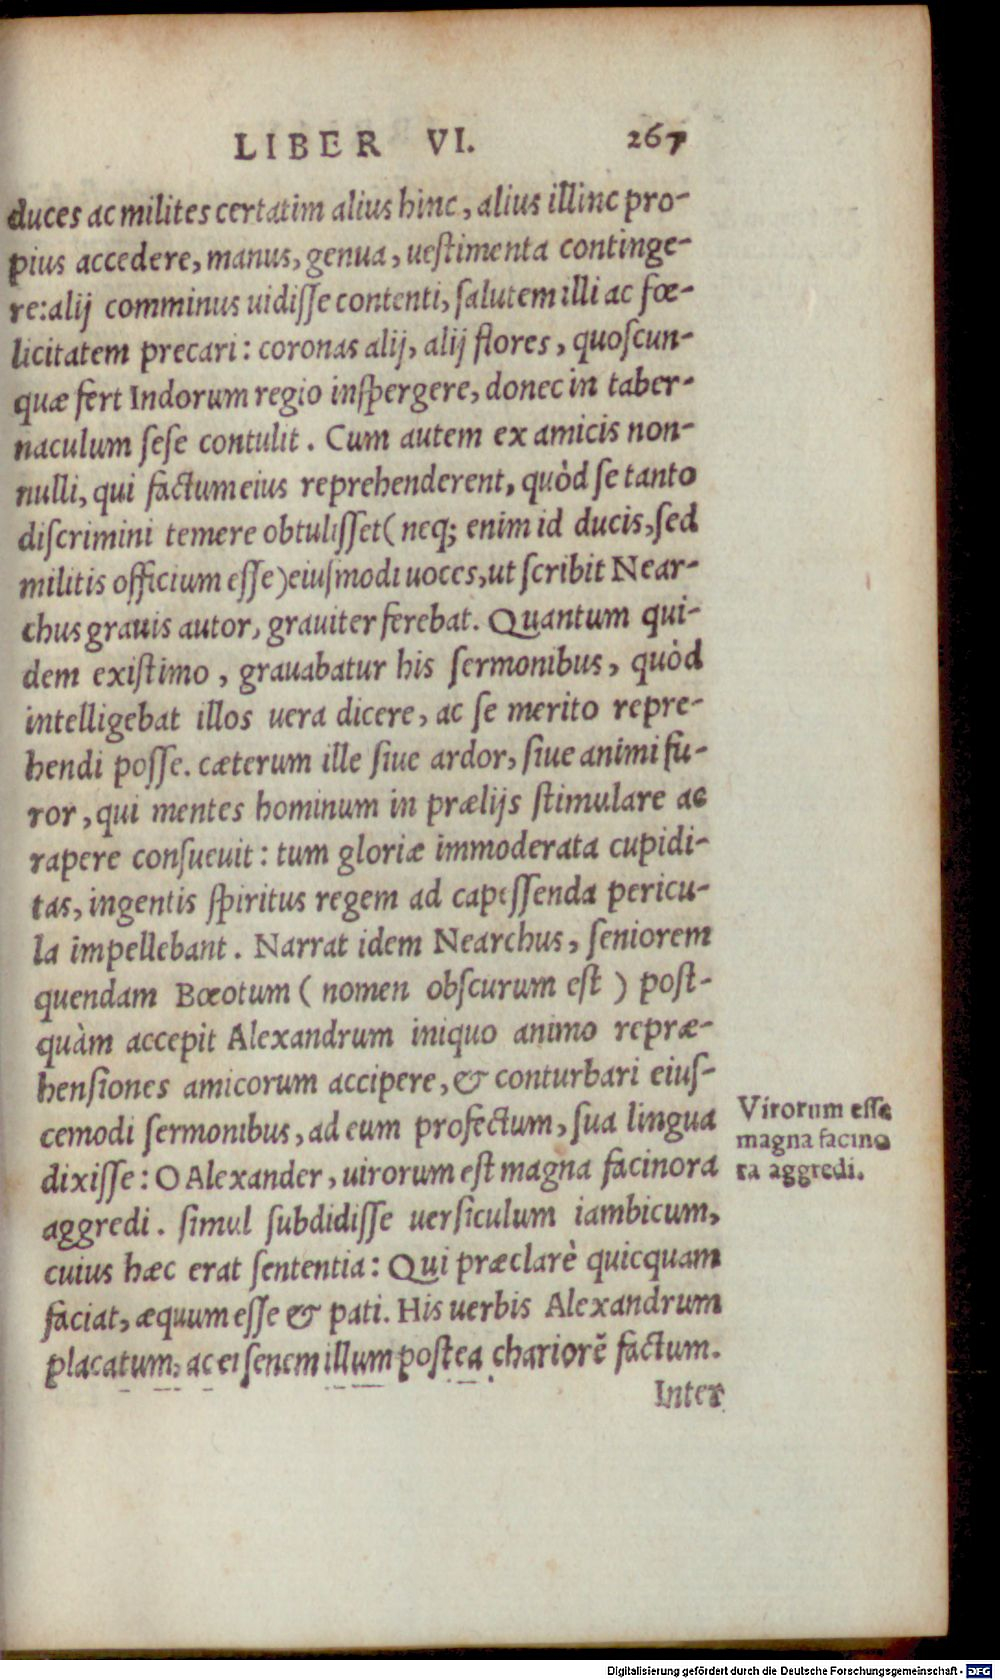 LIBER VI. 267
duces ac milites certatim alius hinc, alius illinc pro-
pius accedere, manus, genua, ueſtimenta continge-
re: alij comminus uidiſſe contenti, ſalutem illi ac fœ-
licitatem precari: coronas alij, alij flores, quoſcun-
quæ fert Indorum regio inſpergere, donec in taber-
naculum ſeſe contulit. Cum autem ex amicis non-
nulli, qui factum eius reprehenderent, quòd ſe tanto
diſcrimini temere obtuliſſet (neq; enim id ducis, ſed
militis officium eſſe) eiuſmodi uoces, ut ſcribit Near-
chus grauis autor, grauiter ferebat. Quantum qui-
dem exiſtimo, grauabatur his ſermonibus, quòd
intelligebat illos uera dicere, ac ſe merito repre-
hendi poſſe. cæterum ille ſiue ardor, ſiue animi fu-
ror, qui mentes hominum in prælijs ſtimulare ac
rapere conſueuit: tum gloriæ immoderata cupidi-
tas, ingentis ſpiritus regem ad capeſſenda pericu-
la impellebant. Narrat idem Nearchus, ſeniorem
quendam Bœotum (nomen obſcurum eſt) poſt-
quàm accepit Alexandrum iniquo animo repræ-
henſiones amicorum accipere, & conturbari eiuſ-
cemodi ſermonibus, ad eum profectum, ſua lingua
dixiſſe: O Alexander, uirorum eſt magna facinora
aggredi. ſimul ſubdidiſſe uerſiculum iambicum,
cuius hæc erat ſententia: Qui præclarè quicquam
faciat, æquum eſſe & pati. His uerbis Alexandrum
placatum, ac ei ſenem illum poſtea chariorē factum.
Inter
Virorum eſſe
magna facino
ra aggredi.
Digitalisierung gefördert durch die Deutsche Forschungsgemeinschaft - DFG